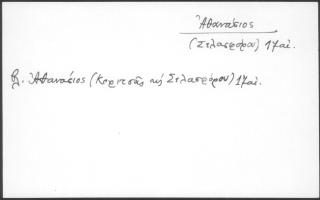 Ἀθανάσιος
(Στλασφόρου) 17 αἰ.
βλ. Ἀθανάσιος (Κορίτσας καὶ Στλασφόρου) 17 αἰ.